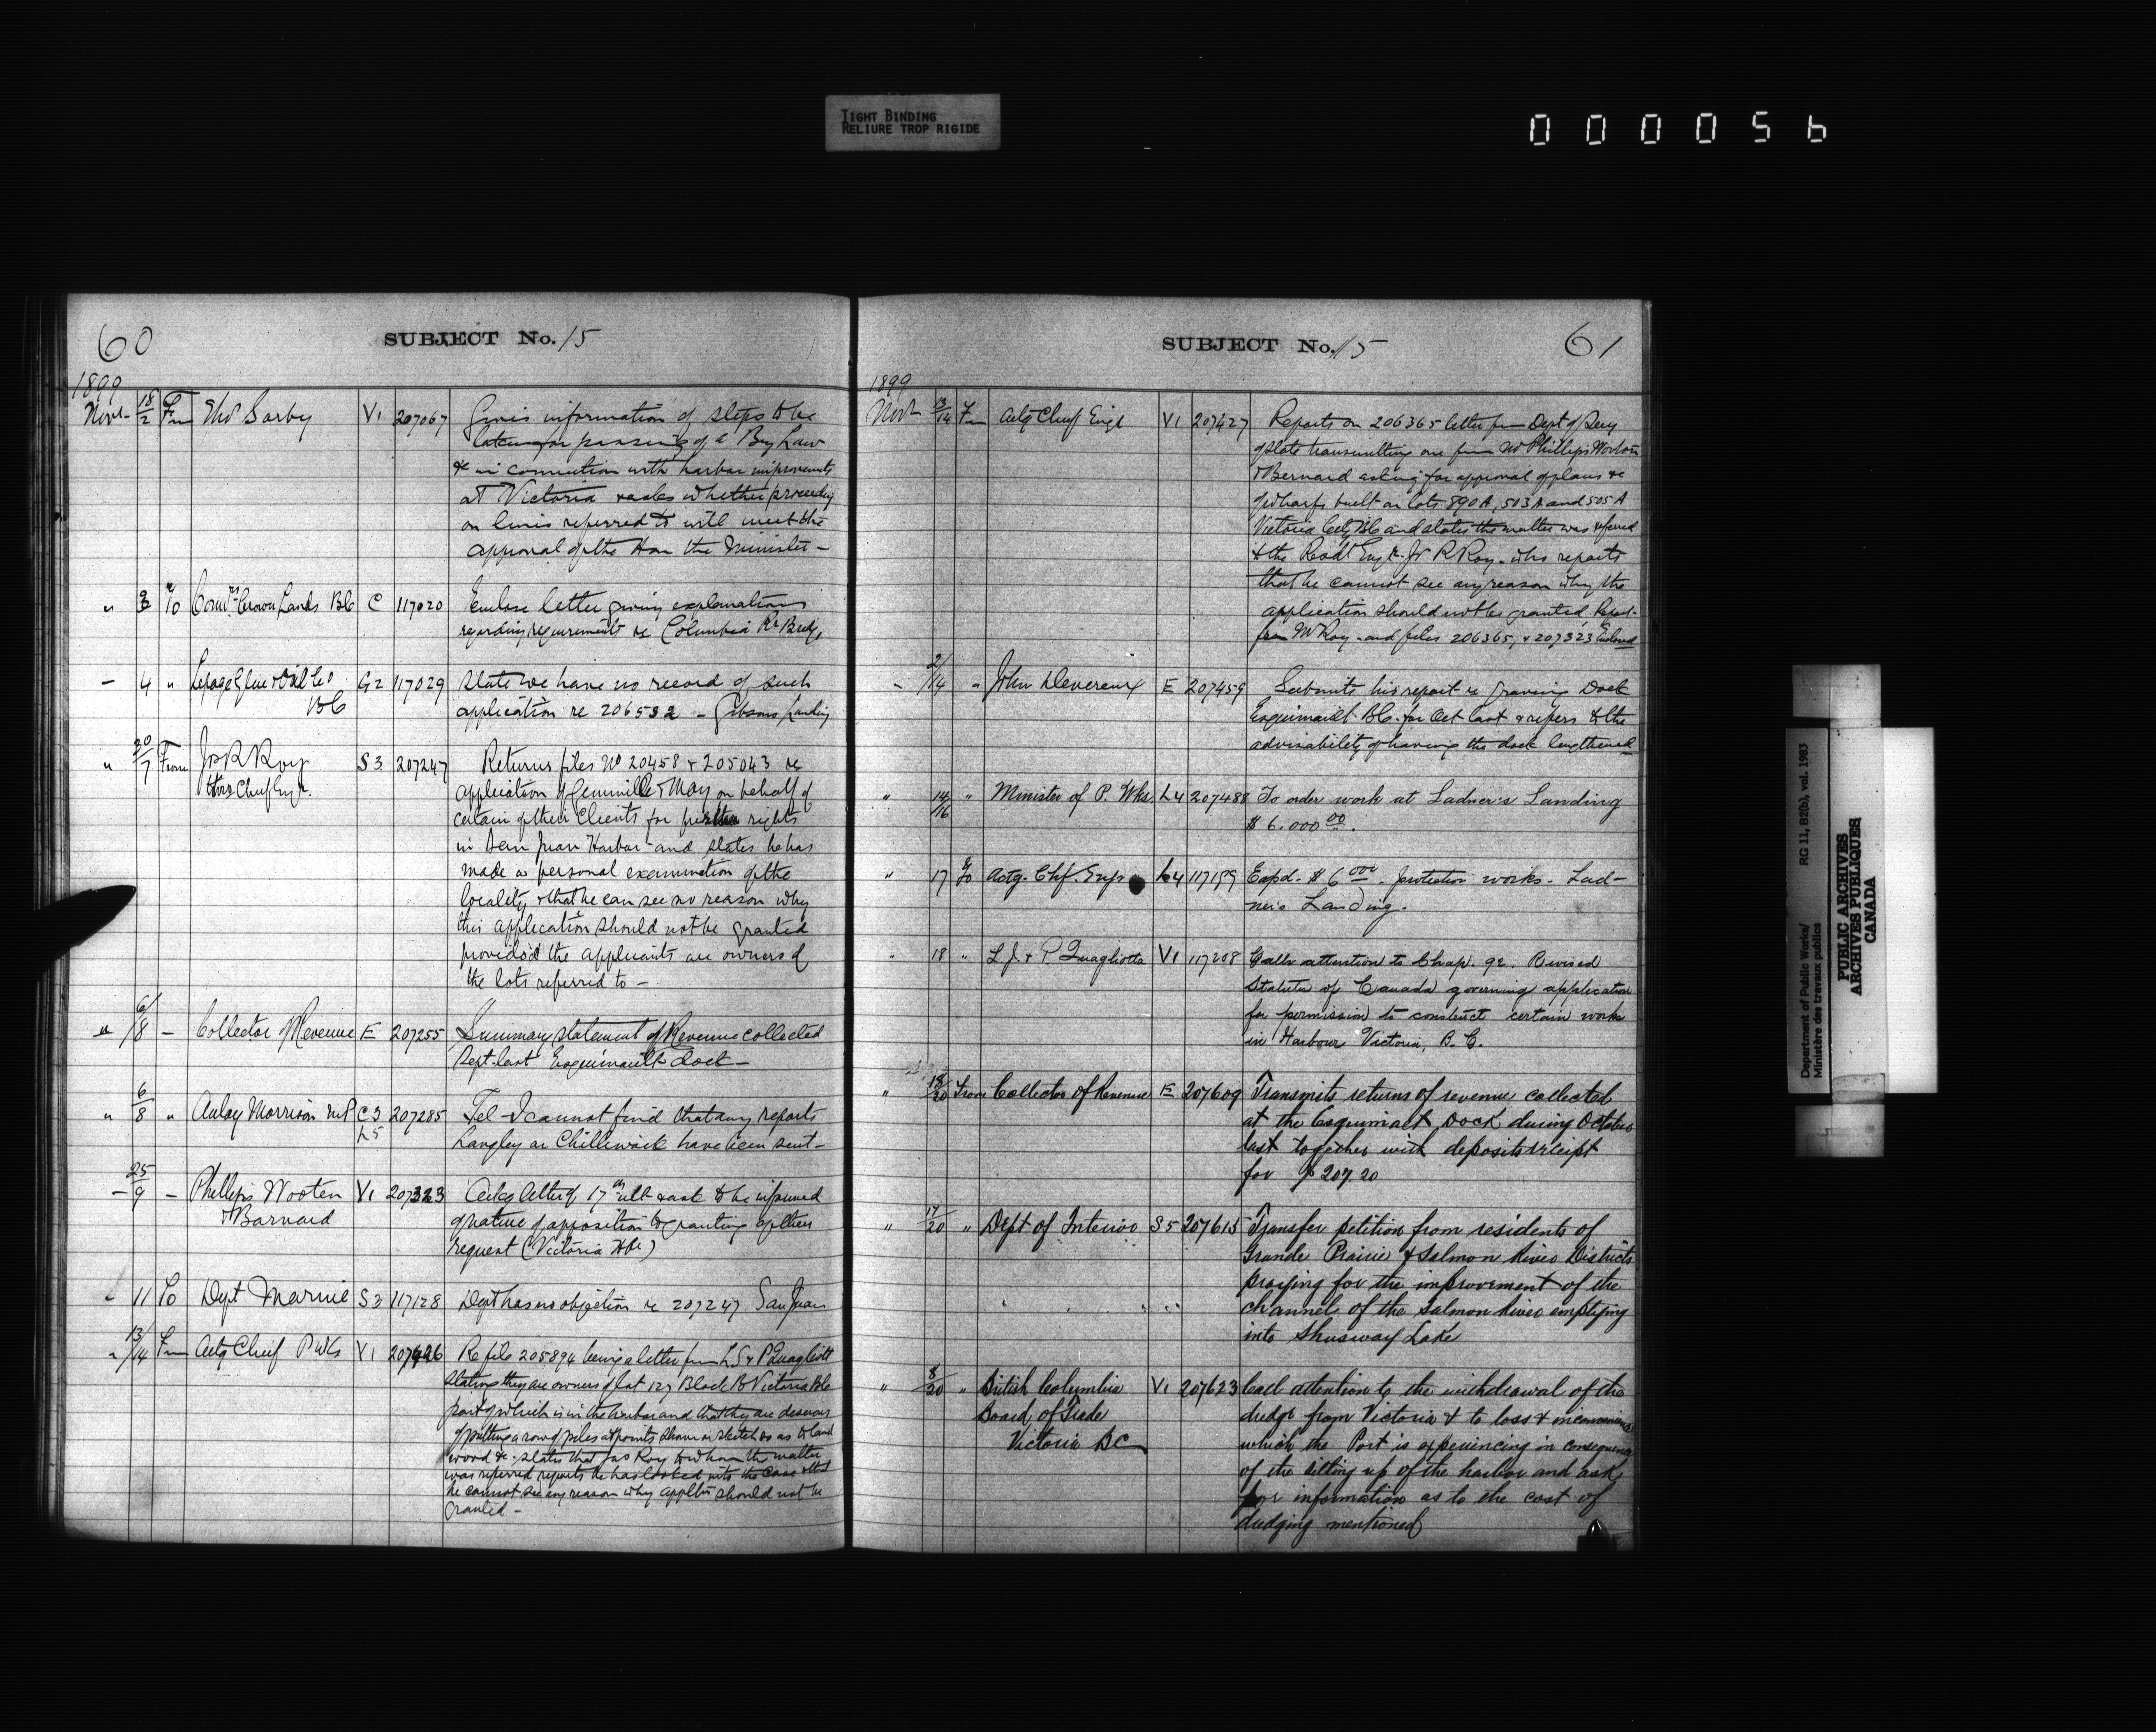 TIGHT BINDING
RELIURE TROP RIGIDE
0 0 0 0 5 6
60
SUBJECT No. 15
1899
Novr 18/2 Fm Tho Sorby V1 207067 Gives information of steps to be
taken for passing of a By Law
&c in connection with harbor improvements
at Victoria & asks whether proceeding
on lines referred to will meet the
approval of the Hon the Minister –
" 3 To Comr Crown Lands BC C 117020 Enclose letter giving explanations
regarding requirements re Columbia Rr Bridge
– 4 " Lepage Glue & Oil Co G2 117029 State we have no record of such
BC application re 206532 – Gibsons Landing
" 30/7 From Jos R Roy S3 207247 Returns files No 20458 & 205043 re
Chief Engr. application of & May on behalf of
certain of their Clients for rights
in San Juan Harbor and states he has
made a personal examination of the
locality & that he can see no reason why
this application should not be granted
provided the applicants are owners of
the lots referred to –
" 6/8 – Collector of Revenue E 207255 Summary statement of Revenue collected
Sept. last Esquimault dock –
" 6/8 " Aulay Morrison MP C3 207285 Tel – I cannot find that any reports
L5 Langley or Chilliwack have been sent –
– 25/9 – Phillips Wooten V1 207323 Ackg letter of 17th ult & ask to be informed
& Barnard of nature of opposition to granting of their
request (Victoria Hbr)
11 To Dept Marine S3 117128 Dept has no objection re 207247 San Juan
" 13/14 Fm Actg Chief P Wks V1 207426 Re file 205894 being a letter from L.J & P Quagliotti
stating they are owners of lot 127 Block B Victoria BC
part of which is in the harbor and that they are desirous
of putting a row of piles at points shown on sketch so as to land
wood &c. states that Jos Roy to whom the matter
was referred reports he has looked into the case & that
he cannot see any reason why appltn should not be
granted –
SUBJECT No. 15
61
1899
Novr 13/14 Fm Actg Chief Engr V1 207427 Reports on 206365 letter from Dept of Secy
of State transmitting one from Mr Phillips Wooton
& Bernard asking for approval of plans &c
of wharfs built on lots 890 A, 503 A and 505 A
Victoria City BC and states the matter was referred
to the Resdt Engr. Jr R Roy. who reports
that he cannot see any reason why the
application should not be granted. Report
from Mr Roy. and files 206365, & 207323 Enclosed
– 2/14 " John Devereux E 207459 Submits his report re Graving Dock
Esquimault BC. for Oct last & refers to the
advisability of having the dock lengthened
" 14/16 " Minister of P. Wks. L4 207488 To order work at Ladner's Landing
$ 6.000 00.
" 17 To Actg. Chf. Engr L4 117199 Expd. $ 6000. protection works – Lad-
ner's Landing.
" 18 " L J. & P. Quagliotta V1 117208 Calls attention to Chap. 92. Revised
Statutes of Canada governing application
for permission to construct certain works
in Harbour Victoria, B.C.
" 18/20 From Collector of Revenue E 207609 Transmits returns of revenue collected
at the Esquimalt Dock during October
last together with deposit receipt
for $ 207.20
" 17/20 " Dept of Interior S5 207615 Transfer petition from residents of
Grande Prairie & Salmon River Districts
praying for the improvement of the
channel of the Salmon River emptying
into Shuswap Lake
" 8/20 " British Columbia V1 207623 Call attention to the withdrawal of the
Board of Trade dredge from Victoria & to loss & inconvenience
Victoria BC which the Port is experiencing in consequence
of the silting up of the harbor and ask
for information as to the cost of
dredging mentioned
Department of Public Works/ RG 11, B2(b), vol. 1983
Ministère des travaux publics
PUBLIC ARCHIVES
ARCHIVES PUBLIQUES
CANADA